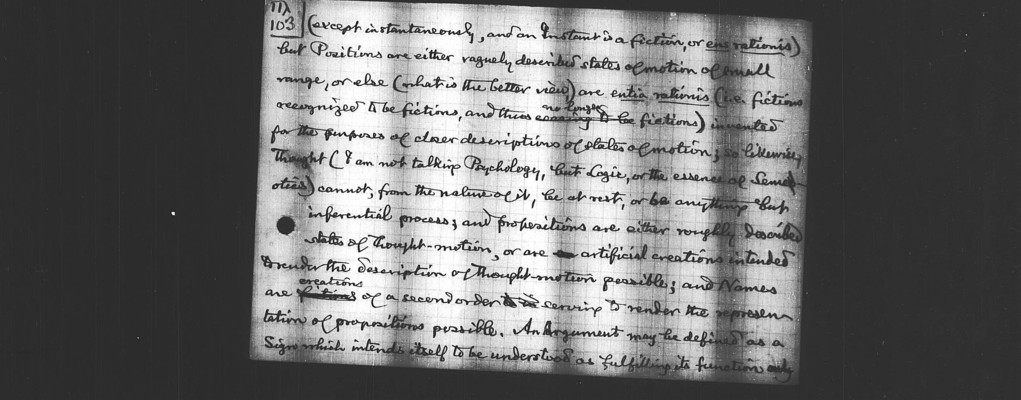 103
(except instantaneously, and an Instant is a fiction, or ens rationis)
but Positions are either vaguely described states of motion of small
range, or else (what is the better view) are entia rationis (i.e. fictions
no longer
recognized to be fictions, and thus ceasing to be fictions) invented
for the purposes of closer descriptions of states of motion; so likewise,
Thought (I am not talking Psychology, but Logic, or the essence of Seme-
otics) cannot, from the nature of it, be at rest, or be anything but
inferential process; and propositions are either roughly described
states of Thought-motion, or are artificial creations intended
to render the description of Thought-motion possible; and Names
creations
are fictions of a second order serving to render the represen-
tation of propositions possible. An Argument may be defined as a
Sign which intends itself to be understood as fulfilling its function only